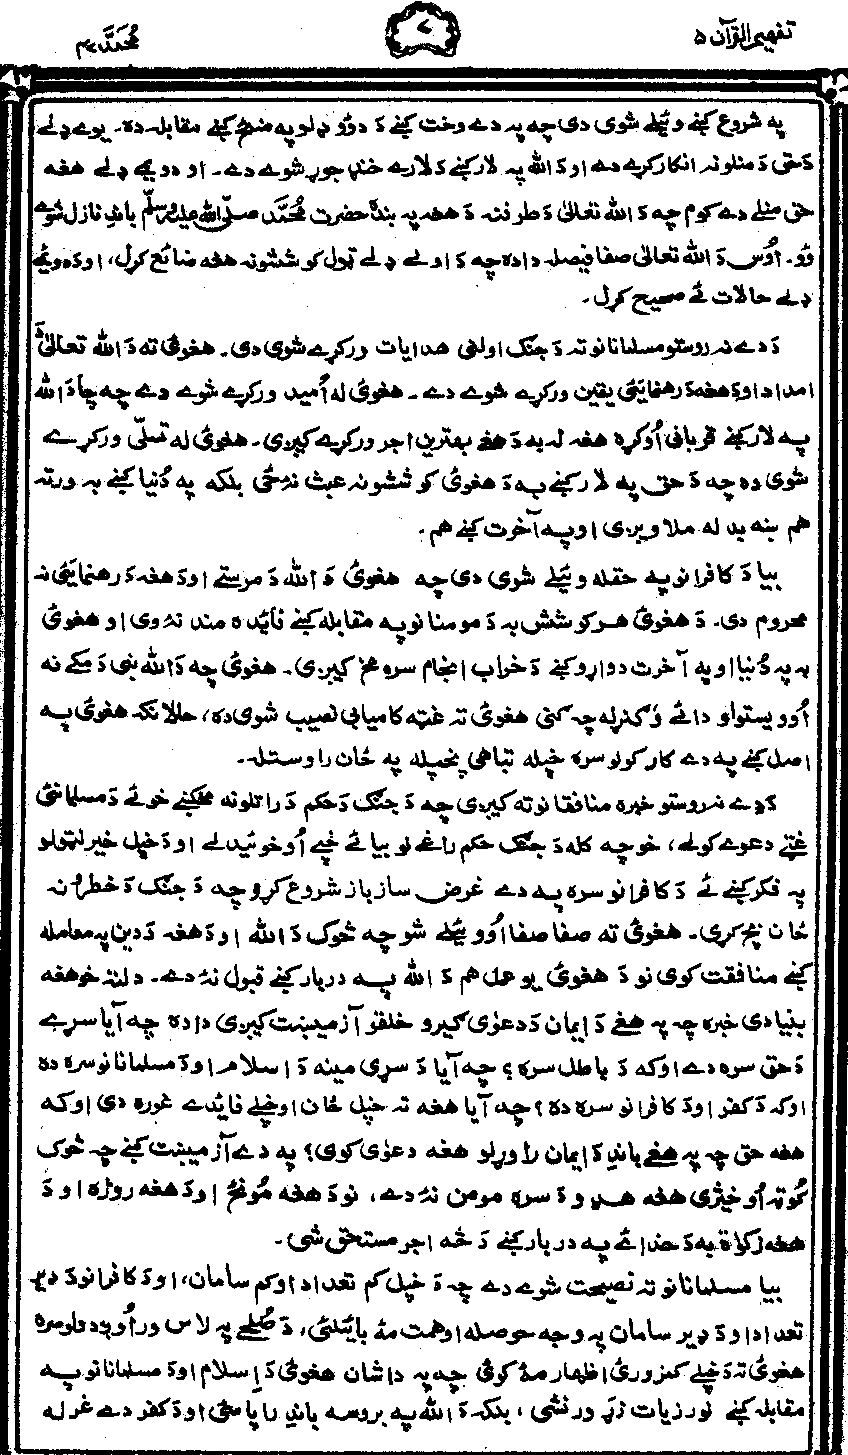 تفهیم القرآن ۵
۷
مُحَمَّد ۴۷
په شروع کښے وئیلے شوی دی چه په دے وخت کښے دَ دوُو ډلو په منځ کښے مقابله ده۔ یوے ډلے
دَحق دَ منلو نه انکار کړے دے او دَ الله په لار کښے دَ لارے خنډ جوړ شوے دے۔ او دویمے ډلے هغه
حق منلے دے کوم چه دَ الله تعالیٰ دَ طرفنه دَ هغه په بنده حضرت مُحَمَّد صلّی الله علیه وسلّم باندِ نازل شوے
وُو۔ اوُس دَ الله تعالیٰ صفا فیصله داده چه دَ اولے ډلے ټول کوششونه هغه ضائع کړل، او دَ دویمے
ډلے حالات ئے صحیح کړل۔
دَ دے نه روستو مسلمانانو ته دَ جنګ اولنی هدایات ورکړے شوی دی۔ هغوئی ته دَ الله تعالیٰ دَ
امداد او دَ هغه دَ رهنمایئ یقین ورکړے شوے دے۔ هغوئی له اُمید ورکړے شوے دے چه چا دَ الله
په لار کښے قربانی اُوکړه هغه له به دَ هغے بهترین اجر ورکړے کیږی۔ هغوئی له تسلّی ورکړے
شوی ده چه دَ حق په لار کښے به دَ هغوئی کوششونه عبث نهٔ ځی بلکه په دُنیا کښے به ورته
هم ښه بدله ملاویږی او په آخرت کښے هم۔
بیا دَ کافرانو په حقله وئیلے شوی دی چه هغوئی دَ الله دَ مرستے او دَ هغه دَ رهنمایئ نه
محروم دی۔ دَ هغوئی هر کوشش به دَ مومنانو په مقابله کښے فائده مند نهٔ وی او هغوئی
به په دُنیا او په آخرت دواړو کښے دَ خراب انجام سره مخ کیږی۔ هغوئی چه دَ الله نبی دَ مکے نه
اُوویستلو او دائے وګنړله چه ګنی هغوئی ته غټه کامیابی نصیب شوی ده، حالانکه هغوئی په
اصل کښے په دے کار کولو سره خپله تباهی پخپله په ځان راوستله۔
دَ دے نه روستو خبره منافقانو ته کیږی چه دَ جنګ دَ حکم دَ راتلو نه مخکښے خوئے دَ مسلمانئ
غټے دعوے کولے، خو چه کله دَ جنګ حکم راغے نو بیا ئے ښپے اُوخوئیدلے او دَ خپل خیر لټولو
په فکر کښے ئے دَ کافرانو سره په دے غرض ساز باز شروع کړو چه دَ جنګ دَ خطرو نه
ځان بچ کړی۔ هغوئی ته صفا صفا اُووئیلے شو چه څوک دَ الله او دَ هغه دَ دین په معامله
کښے منافقت کوی نو دَ هغوئی یو عمل هم دَ الله په دربار کښے قبول نهٔ دے۔ دلته خو هغه
بنیادی خبره چه په هغے دَ ایمان دَ دعوٰی ګیرو خلقو آزمیښت کیږی داده چه آیا سړے
دَ حق سره دے اوکه دَ باطل سره؟ چه آیا دَ سړی مینه دَ اسلام او دَ مسلمانانو سره ده
اوکه دَ کفر او دَ کافرانو سره ده؟ چه آیا هغه ته خپل ځان او خپلے فائدے غوره دی اوکه
هغه حق چه په هغے باندِ دَ ایمان راوړلو هغه دعوٰی کوی؟ په دے آزمیښت کښے چه څوک
کُوټه اُوخیژی هغه هډو دَ سره مومن نهٔ دے، نو دَ هغه مُونځ او دَ هغه روژه او دَ
هغه زکوٰة به دَ خدائے په دربار کښے دَ څه اجر مستحق شی۔
بیا مسلمانانو ته نصیحت شوے دے چه دَ خپل کم تعداد او کم سامان، او دَ کافرانو دَ ډیر
تعداد او دَ ډیر سامان په وجه حوصله او همت مهٔ بائیلئی، دَ صُلحے په لاس وراُوږدولو سره
هغوئی ته دَ خپلے کمزورئ اظهار مهٔ کوئی چه په داشان هغوئی دَ اِسلام او دَ مسلمانانو په
مقابله کښے نور زیات زړه ور نشی، بلکه دَ الله په بروسه باندِ را پاسئی او دَ کفر دے غر له